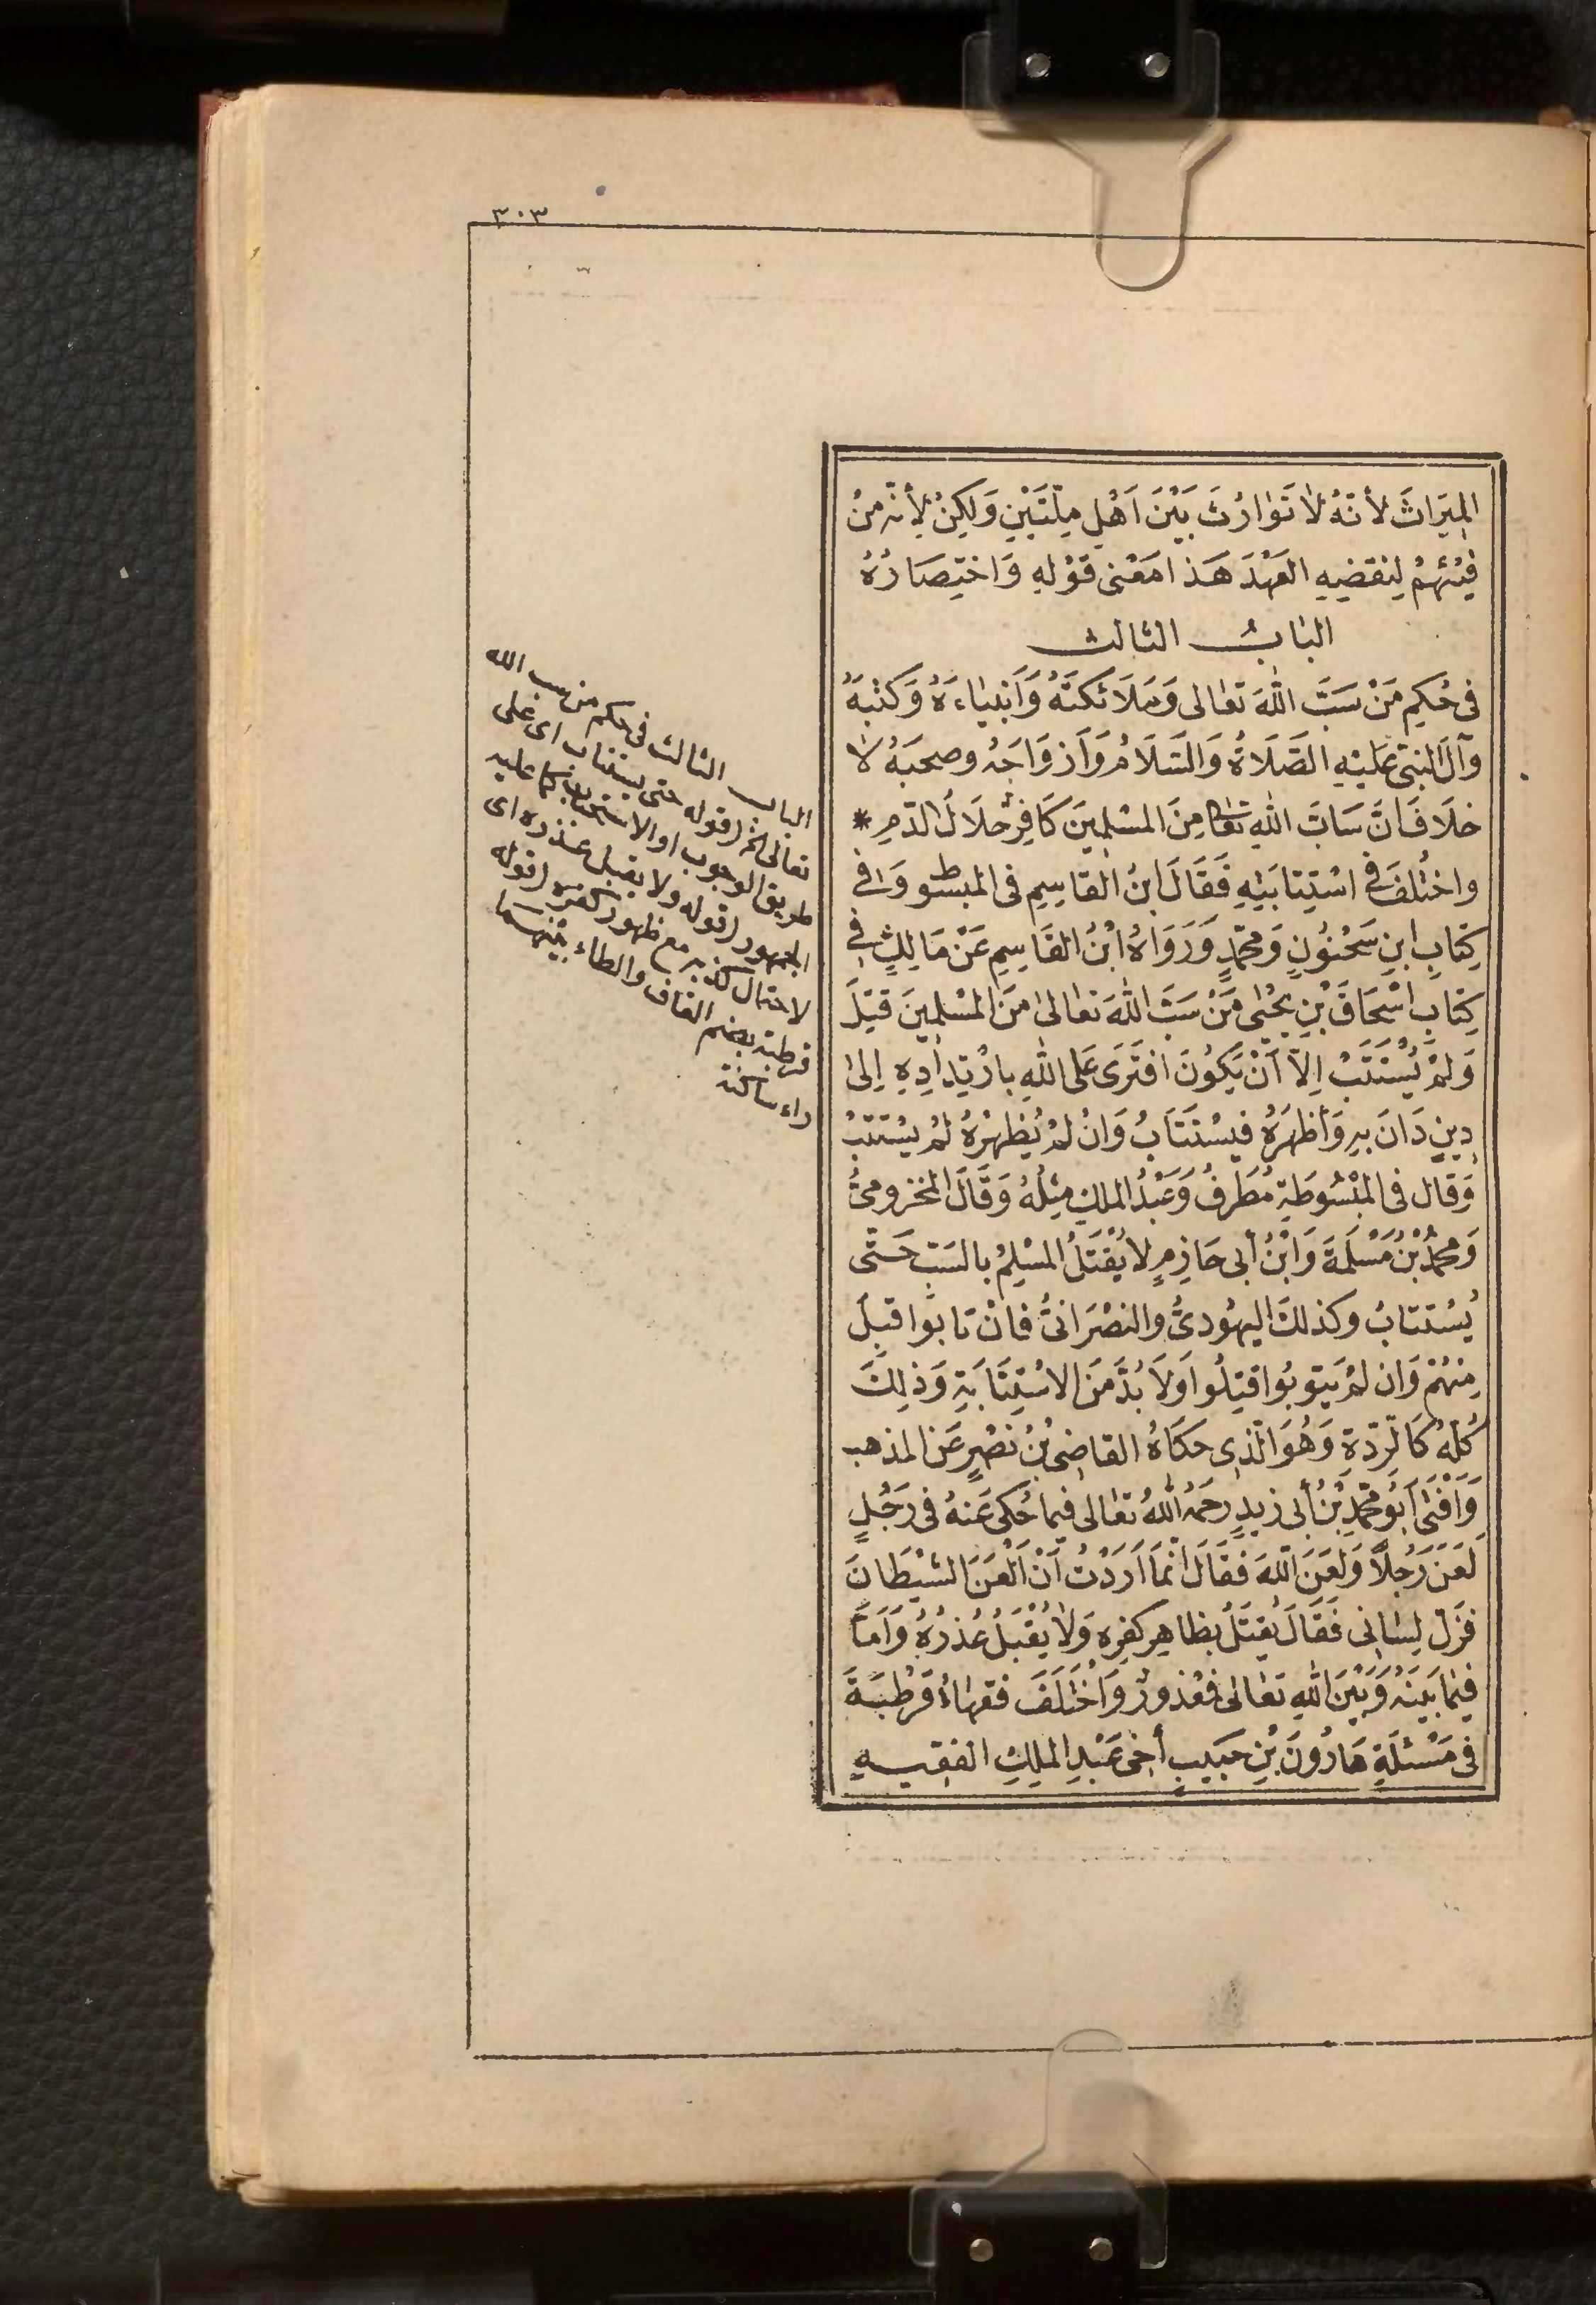 ٣٠٣
المِيَراثَ لأَنَّهُ لَا تَوَارُثَ بَيْنَ اَهْلِ مِلَّتَيْنِ وَلَكِنْ لِأَنَّهُ مِنْ
فَيْئِهِمْ لِنَقضِهِ العَهْدَ هَذا مَعْنَى قَوْلِهِ وَاخْتِصَارُهُ
البَابُ الثالث
فى حُكمِ مَنْ سَبَّ اللّٰهَ تَعَالى وَمَلَائكَتَهُ وَأَنبِيَاءَهُ وَكُتْبَهُ
وَآلَ النَّبىِّ عَلَيْهِ الصَّلَاةُ وَالسَّلَامُ وَأَزوَاجَهُ وصحبَهُ لَا
خلَافَ أَنَّ سَابَّ اللّٰهِ تَعَالَى مِنَ المُسْلِمِينَ كَافِرٌ حَلَالُ الدَّمِ *
واختُلِفَ فى اسْتِتَابَتِهِ فَقَالَ ابنُ القَاسِمِ فى المَبسُوطِ وَفى
كِتَابِ ابنِ سَحْنُونٍ وَمُحَمَّدٍ وَرَوَاهُ ابْنُ القَاسِمِ عَنْ مَالِكٍ فى
كِتَابِ اسْحَاقَ بْنِ يَحْيَى مَنْ سَبَّ اللّٰهَ تعَالى مِنَ المُسْلِمِينَ قُتِلَ
وَلَمْ يُسْتَتَبْ إِلَّا أَنْ يَكُونَ افتَرَى عَلَى اللّٰهِ بارْتِدَادِهِ إِلى
دِينٍ دَانَ بِهِ وَأَظْهَرَهُ فيُسْتَتَابُ وَانْ لَمْ يُظْهِرْهُ لَمْ يُسْتَتَبْ
وَقال فى المَبْسُوطَةِ مُطَرِّفُ وَعَبْدُ المَلِكِ مِثْلُهُ وَقَالَ المَخزومىُّ
وَمُحَمَّدُ بْنُ مَسْلَمَةَ وَابْنُ أَبى حَازِمٍ لا يُقْتَلُ المُسْلِمُ بالسَّبِّ حَتَّى
يُسْتَتابُ وكذلكَ اليَهُودىُّ والنصْرَانىُّ فانْ تابُوا قُبِلَ
مِنْهُمْ وَان لَمْ يَتوبُوا قُتِلُوا وَلَا بُدَّ مِنَ الاسْتِتَابَةِ وَذلِكَ
كُلُّهُ كَالرِّدَّةِ وَهُوَ الَّذِى حكَاهُ القاضِى بْنُ نَصْرٍ عَنِ المذهب
وَأَفتَى أَبُو مُحَمَّدِ بْنُ أَبى زيدٍ رحمَهُ اللّٰهُ تعَالى فيما حُكىَ عَنهُ فى رَجُلٍ
لَعَنَ رَجُلًا وَلَعَنَ اللّٰهَ فَقَالَ انَّمَا اَرَدْتُ اَنْ اَلْعَنَ الشيْطَانَ
فزَلَّ لِسَانى فَقَالَ يُقتَلُ بظاهِرِ كفرِهِ وَلَا يُقْبَلُ عُذرُهُ وَأَمَّا
فِيمَا بَيْنَهُ وَبَيْنَ اللّٰهِ تعَالى فَمَعْذورٌ وَاخْتَلَفَ فقَهَاءُ قُرْطُبَةَ
فى مَسْئَلَةِ هَارُونَ بْنِ حَبيبٍ أَخِى عَبْدِ المَلِكِ الفَقِيهِ
الباب الثالث فى حكم من سب الله
تعالى الخ (قوله حتى يستتاب اى على
طريق الوجوب او الاستحباب كما عليه
الجمهور (قوله ولا يقبل عذره اى
لاحتمال كذبه مع ظهور كفره (قوله
قرطبة بضم القاف والطاء بينهما
راء ساكنة